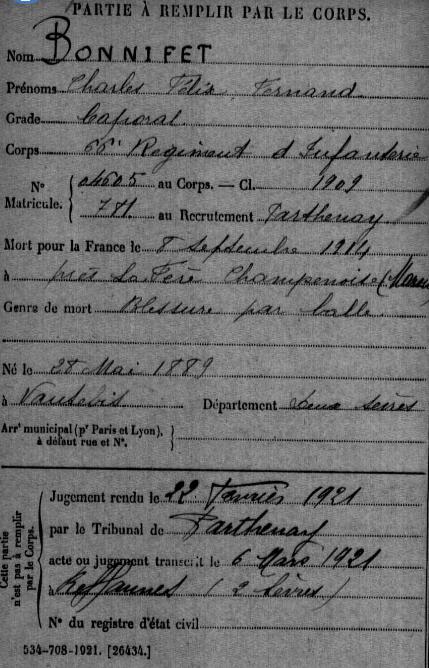 PARTIE À REMPLIR PAR LE CORPS.
Nom BONNIFET
Prénoms Charles Félix Fernand
Grade Caporal
Corps 66e Régiment d'Infanterie
N° Matricule. 04605 au Corps. — Cl. 1909
781 au Recrutement Parthenay
Mort pour la France le 8 Septembre 1914
à près La Fère Champenoise (Marne)
Genre de mort Blessure par balle
Né le 28 Mai 1889
à Vautebis Département Deux Sèvres
Arrt municipal (pr Paris et Lyon), à défaut rue et N°.
Cette partie n'est pas à remplir par le Corps.
Jugement rendu le 22 Février 1921
par le Tribunal de Parthenay
acte ou jugement transcrit le 6 Mars 1921
à (2 Sèvres)
N° du registre d'état civil
534-708-1921. [26434.]